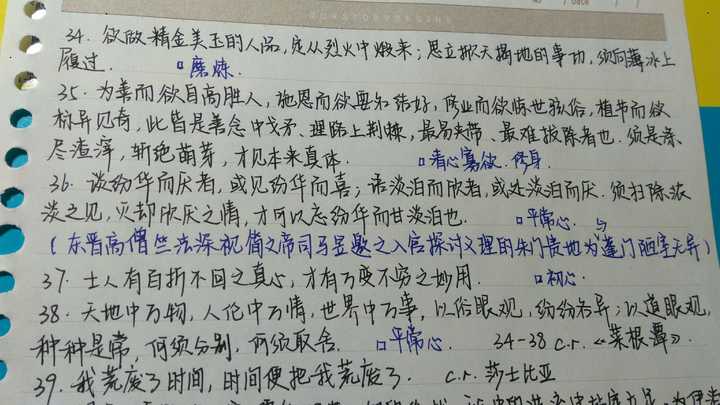 34. 欲做精金美玉的人品,定从烈火中煅来;思立掀天揭地的事功,须向薄冰上
履过. 磨炼.
35. 为善而欲自高胜人,施恩而欲要名结好,修业而欲惊世骇俗,植节而欲
标异见奇,此皆是善念中戈矛、理路上荆棘,最易夹带、最难拔除者也. 须是涤
尽渣滓,斩绝萌芽,才见本来真体. 清心寡欲. 修身.
36. 谈纷华而厌者,或见纷华而喜;语淡泊而欣者,或处淡泊而厌. 须扫除浓
淡之见,灭却欣厌之情,才可以忘纷华而甘淡泊也. 平常心. 与
(东晋高僧竺法深视简文帝司马昱邀之入宫探讨义理的朱门贵地为蓬门陋室无异)
37. 士人有百折不回之真心,才有万变不穷之妙用. 初心.
38. 天地中万物,人伦中万情,世界中万事,以俗眼观,纷纷各异;以道眼观,
种种是常,何须分别,何须取舍. 平常心. 34-38 c.r.《菜根谭》.
39. 我荒废了时间,时间便把我荒废了. c.r. 莎士比亚